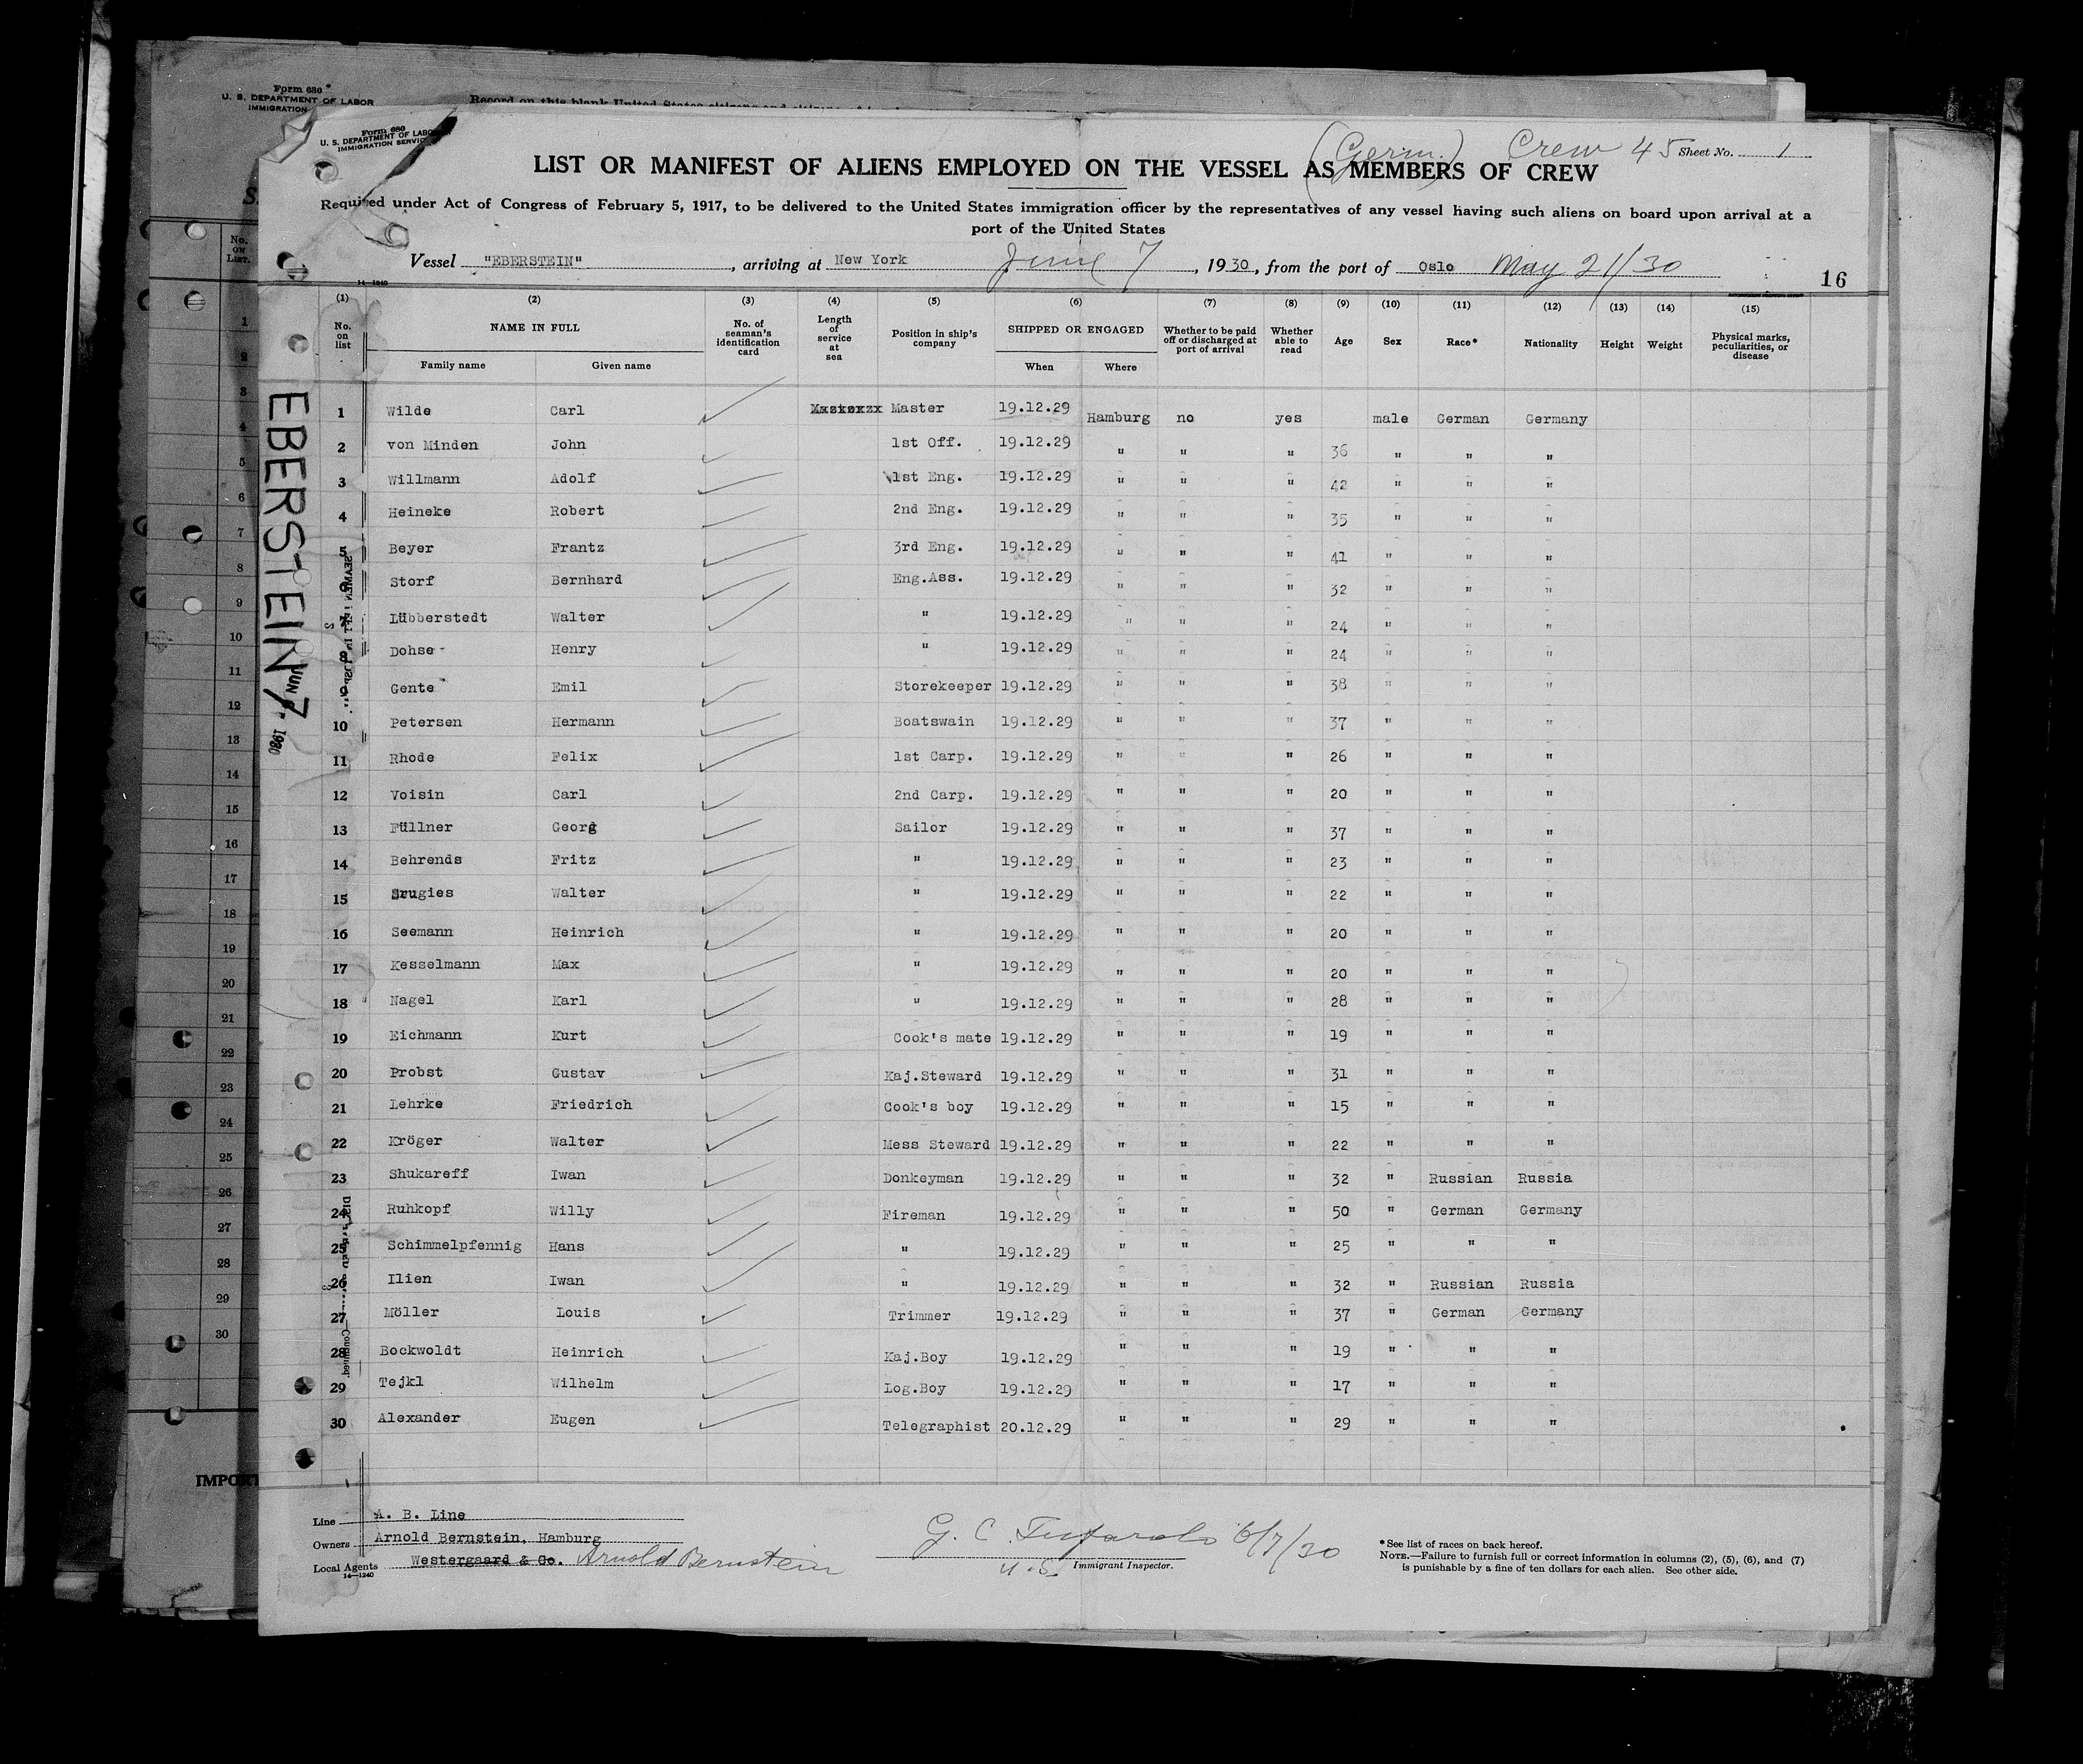 Form 680
U. S. DEPARTMENT OF LABOR
IMMIGRATION
Record on this blank United States citizens and
No. ON LIST.
1
2
3
4
5
6
7
8
9
10
11
12
13
14
15
16
17
18
19
20
21
22
23
24
25
26
27
28
29
30
Form 680
U. S. DEPARTMENT OF LABOR
IMMIGRATION SERVICE
(Germ.) Crew 45 Sheet No. 1
LIST OR MANIFEST OF ALIENS EMPLOYED ON THE VESSEL AS MEMBERS OF CREW
Required under Act of Congress of February 5, 1917, to be delivered to the United States immigration officer by the representatives of any vessel having such aliens on board upon arrival at a
port of the United States
Vessel "EBERSTEIN", arriving at New York June 7, 1930, from the port of Oslo May 21/30
14—1240
16
(1) (2) (3) (4) (5) (6) (7) (8) (9) (10) (11) (12) (13) (14) (15)
No. on list NAME IN FULL No. of seaman's identification card Length of service at sea Position in ship's company SHIPPED OR ENGAGED Whether to be paid off or discharged at port of arrival Whether able to read Age Sex Race* Nationality Height Weight Physical marks, peculiarities, or disease
Family name Given name When Where
1 Wilde Carl Master 19.12.29 Hamburg no yes male German Germany
2 von Minden John 1st Off. 19.12.29 " " " 36 " " "
3 Willmann Adolf 1st Eng. 19.12.29 " " " 42 " " "
4 Heineke Robert 2nd Eng. 19.12.29 " " " 35 " " "
5 Beyer Frantz 3rd Eng. 19.12.29 " " " 41 " " "
6 Storf Bernhard Eng.Ass. 19.12.29 " " " 32 " " "
7 Lübberstedt Walter " 19.12.29 " " " 24 " " "
8 Dohse Henry " 19.12.29 " " " 24 " " "
9 Gente Emil Storekeeper 19.12.29 " " " 38 " " "
10 Petersen Hermann Boatswain 19.12.29 " " " 37 " " "
11 Rhode Felix 1st Carp. 19.12.29 " " " 26 " " "
12 Voisin Carl 2nd Carp. 19.12.29 " " " 20 " " "
13 Füllner Georg Sailor 19.12.29 " " " 37 " " "
14 Behrends Fritz " 19.12.29 " " " 23 " " "
15 Srugies Walter " 19.12.29 " " " 22 " " "
16 Seemann Heinrich " 19.12.29 " " " 20 " " "
17 Kesselmann Max " 19.12.29 " " " 20 " " "
18 Nagel Karl " 19.12.29 " " " 28 " " "
19 Eichmann Kurt Cook's mate 19.12.29 " " " 19 " " "
20 Probst Gustav Kaj.Steward 19.12.29 " " " 31 " " "
21 Lehrke Friedrich Cook's boy 19.12.29 " " " 15 " " "
22 Kröger Walter Mess Steward 19.12.29 " " " 22 " " "
23 Shukareff Iwan Donkeyman 19.12.29 " " " 32 " Russian Russia
24 Ruhkopf Willy Fireman 19.12.29 " " " 50 " German Germany
25 Schimmelpfennig Hans " 19.12.29 " " " 25 " " "
26 Ilien Iwan " 19.12.29 " " " 32 " Russian Russia
27 Möller Louis Trimmer 19.12.29 " " " 37 " German Germany
28 Bockwoldt Heinrich Kaj.Boy 19.12.29 " " " 19 " " "
29 Tejkl Wilhelm Log.Boy 19.12.29 " " " 17 " " "
30 Alexander Eugen Telegraphist 20.12.29 " " " 29 " " "
EBERSTEIN 7
JUN 7 1930
IMPOR
Line A. B. Line
Owners Arnold Bernstein, Hamburg
Local Agents Westergaard & Co. Arnold Bernstein
14—1240
G. C. 6/7/30
U.S. Immigrant Inspector.
*See list of races on back hereof.
NOTE.—Failure to furnish full or correct information in columns (2), (5), (6), and (7)
is punishable by a fine of ten dollars for each alien. See other side.